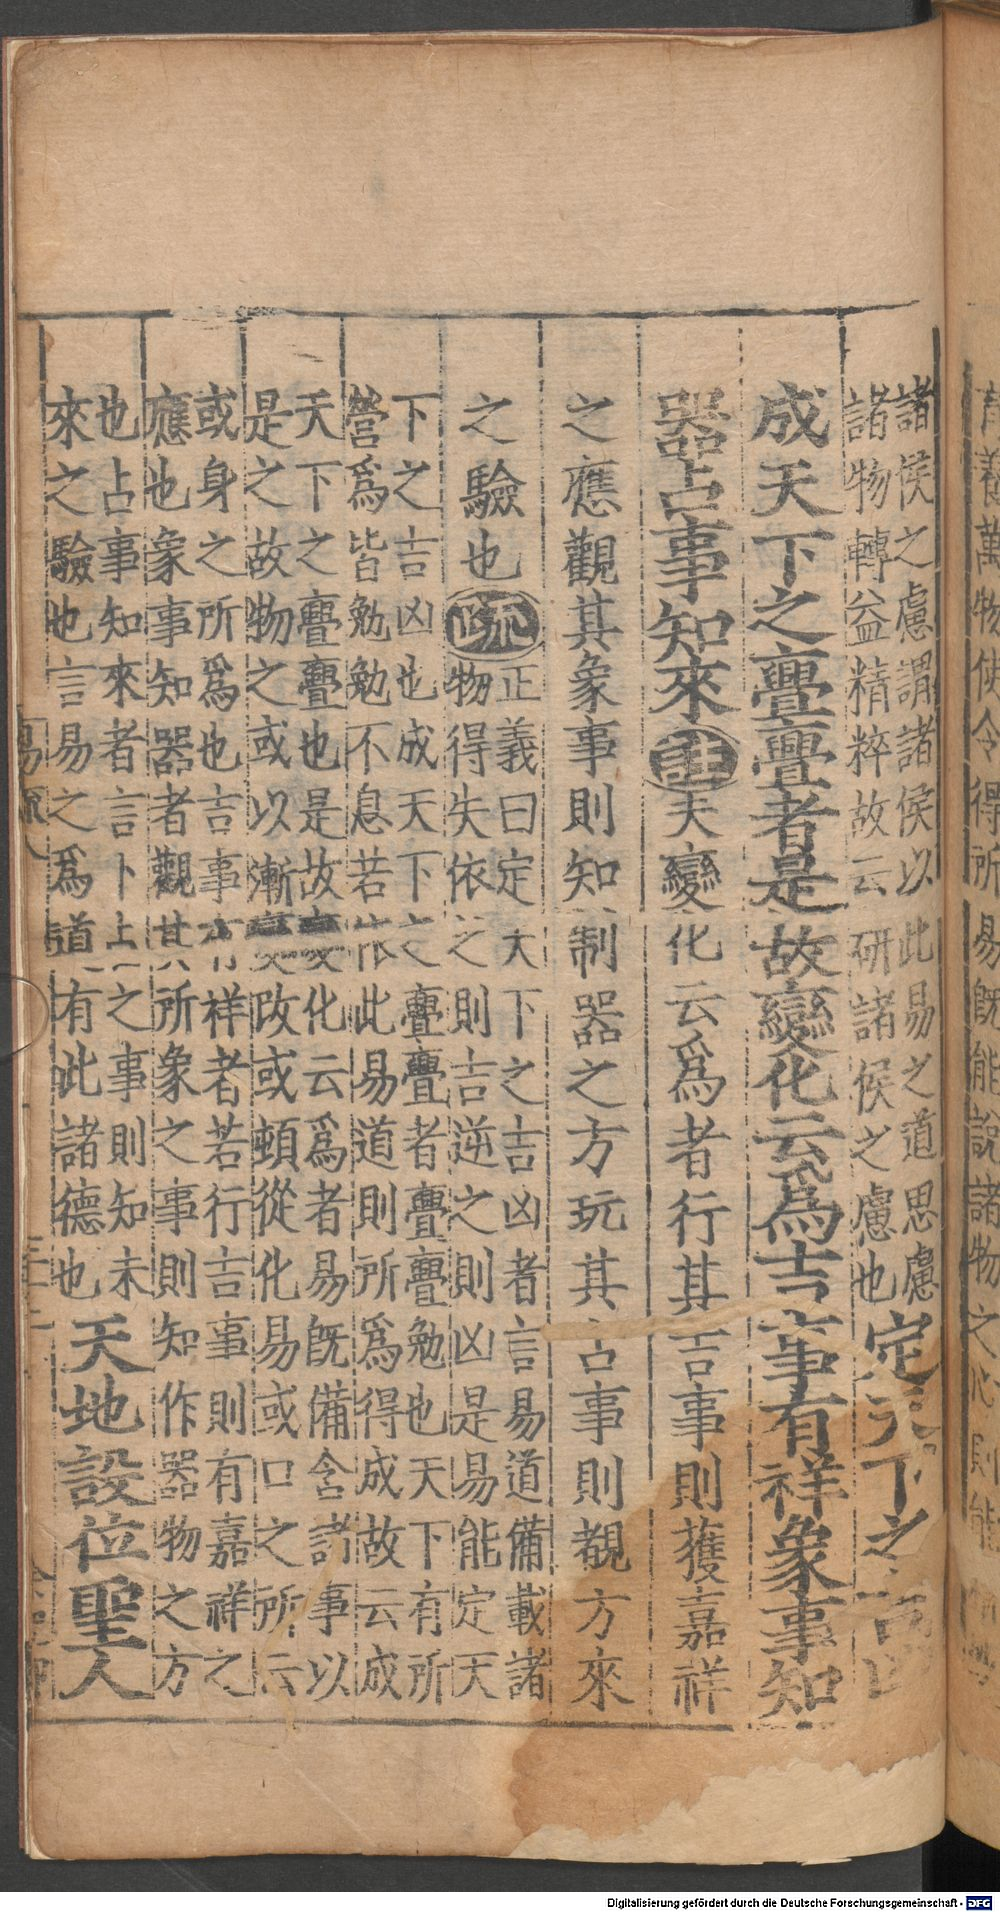 諸侯之慮謂諸侯以此易之道思慮
諸物轉益精粹故云研諸候之慮也
定天下之吉凶
成天下之亹亹者是故變化云爲吉事有祥象事知
器占事知來註夫變化云爲者行其吉事則獲嘉祥
之應觀其象事則知制器之方玩其占事則覩方來
之驗也疏
正義曰定天下之吉凶者言易道備載諸
物得失依之則吉逆之則凶是易能定天
下之吉凶也成天下之亹亹者亹亹勉也天下有所
營爲皆勉勉不息若依此易道則所爲得成故云成
天下之亹亹也是故變化云爲者易旣備含諸事以
是之故物之或以漸變改或頓從化易或口之所云
或身之所爲也吉事有祥者若行吉事則有嘉祥之
應也象事知器者觀其所象之事則知作器物之方
也占事知來者言卜占之事則知未
來之驗也言易之爲道有此諸德也
天地設位聖人
育養萬物使令得所易旣能說諸物之心則能
Digitalisierung gefördert durch die Deutsche Forschungsgemeinschaft - DFG